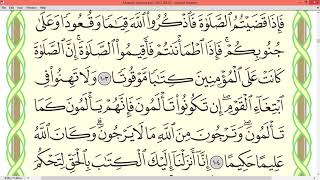 فَإِذَا قَضَيْتُمُ ٱلصَّلَوٰةَ فَٱذْكُرُوا۟ ٱللَّهَ قِيَـٰمًا وَقُعُودًا وَعَلَىٰ
جُنُوبِكُمْ ۚ فَإِذَا ٱطْمَأْنَنتُمْ فَأَقِيمُوا۟ ٱلصَّلَوٰةَ ۚ إِنَّ ٱلصَّلَوٰةَ
كَانَتْ عَلَى ٱلْمُؤْمِنِينَ كِتَـٰبًا مَّوْقُوتًا ١٠٣ وَلَا تَهِنُوا۟ فِى
ٱبْتِغَآءِ ٱلْقَوْمِ ۖ إِن تَكُونُوا۟ تَأْلَمُونَ فَإِنَّهُمْ يَأْلَمُونَ كَمَا
تَأْلَمُونَ ۖ وَتَرْجُونَ مِنَ ٱللَّهِ مَا لَا يَرْجُونَ ۗ وَكَانَ ٱللَّهُ
عَلِيمًا حَكِيمًا ١٠٤ إِنَّآ أَنزَلْنَآ إِلَيْكَ ٱلْكِتَـٰبَ بِٱلْحَقِّ لِتَحْكُمَ